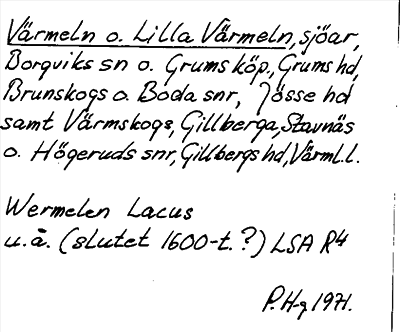 Värmeln o. Lilla Värmeln, sjöar,
Borgviks sn o. Grums köp., Grums hd,
Brunskogs o. Boda snr, Jösse hd
samt Värmskogs, Gillberga, Stavnäs
o. Högeruds snr, Gillbergs hd, Värml. l.
Wermelen Lacus
u.å. (slutet 1600-t.?) LSA R4
P. H-g 1971.